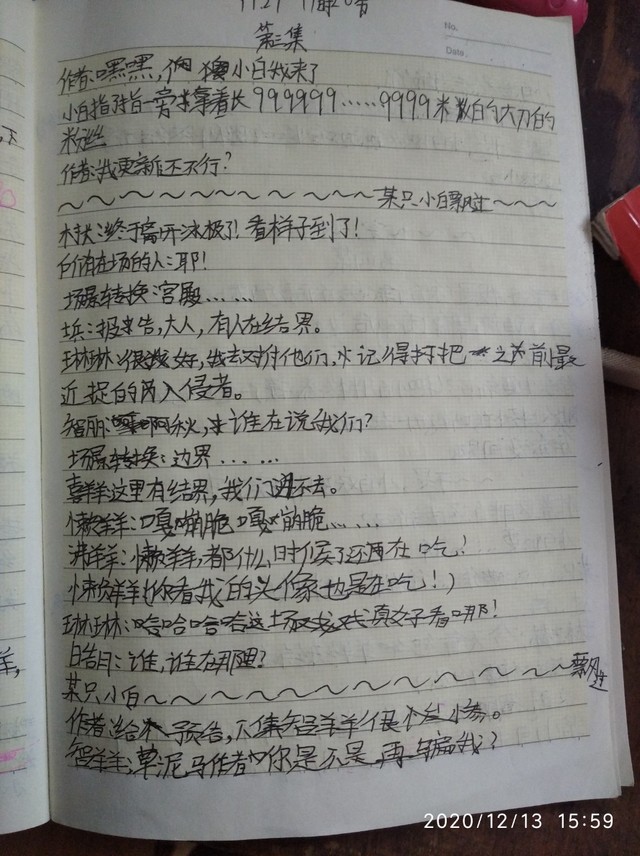 第三集
No.
Date.
作者:嘿嘿,小白我来了
小白指着旁拿着长999999.....9999米数白的大刀的
粉丝
作者:我更新还不行?
~~~~~~~~~~某只小白飘过~~~
木犬:终于离开冰极了!看样子到了!
所有在场的人:耶!
场景转换:宫殿......
士兵:报告,大人,有人在结界。
琳琳:很好,我去对付他们,火记得打把之前最
近捉的两入侵者。
智丽:啊秋,谁在说我们?
场景转换:边界......
喜羊羊这里有结界,我们进不去。
懒羊羊:嘎嘣脆嘎嘣脆......
沸羊羊:懒羊羊,都什么时候了还再在吃!
懒羊羊(你看我的头像也是在吃!)
琳琳:哈哈哈哈这场戏真好看哪!
皓月:谁,谁在那里?
某只小白~~~~~~~~~~飘过
作者:给个预告,下集智羊羊很惨。
智羊羊:草泥马作者你是不是再骗我?
2020/12/13 15:59